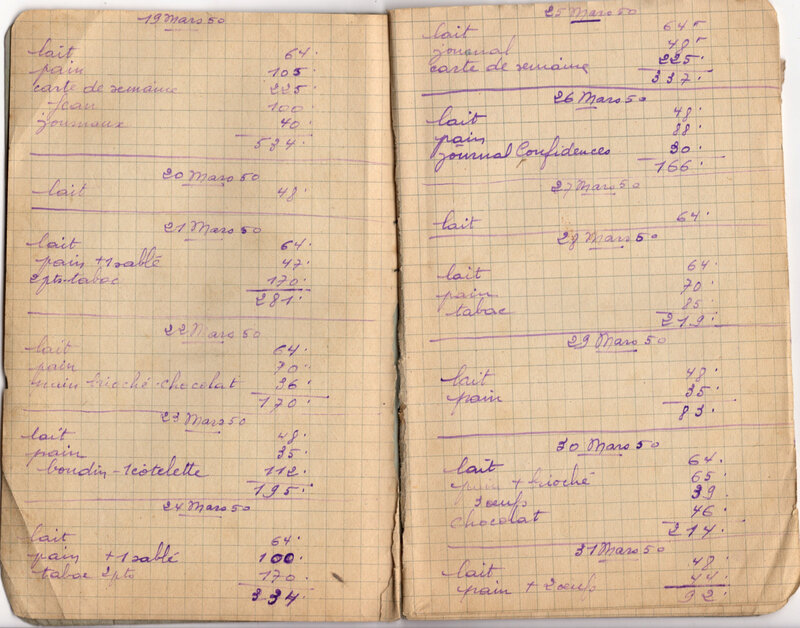 19 Mars 50
lait 64.
pain 105
carte de semaine 225
Jean 100
journaux 40.
534.
20 Mars 50
lait 48.
21 Mars 50
lait 64.
pain +1 sablé 47.
2 pts tabac 170.
281.
22 Mars 50
lait 64.
pain 70.
pain brioché-chocolat 36.
170.
23 Mars 50
lait 48.
pain 35.
boudin-1 côtelette 112.
195.
24 Mars 50
lait 64.
pain +1 sablé 100.
tabac 2 pts 170.
334.
25 Mars 50
lait 64
journal 48
carte de semaine 225.
337.
26 Mars 50
lait 48.
pain 88.
journal Confidences 30.
166.
27 Mars 50
lait 64.
28 Mars 50
lait 64.
pain 70.
tabac 85.
219.
29 Mars 50
lait 48.
pain 35.
83.
30 Mars 50
lait 64.
pain + brioché 65.
3 œufs 39.
chocolat 46.
214.
31 Mars 50
lait 48.
pain + 2 œufs 44.
92.